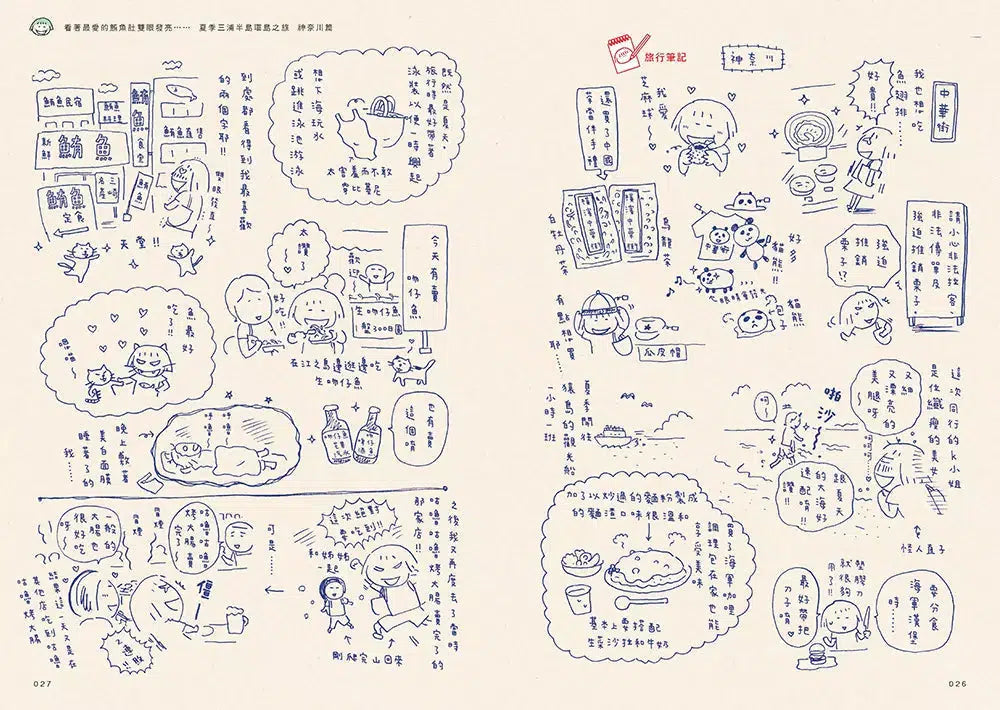 看著最愛的鮪魚肚雙眼發亮…… 夏季三浦半島環島之旅 神奈川篇
旅行筆記
神奈川
中華街
我也想吃
魚翅排……
好貴!!
我愛
芝麻球~
還買了中國
茶當伴手禮
橫濱中華街
橫濱中華街
烏龍茶
白牡丹茶
好多
貓熊!!
中華街
眼睛會發光
貓熊
包子
請小心非法拉客、
非法傳單及
強迫推銷栗子。
強迫
推銷
栗子!?
有點想買
耶……
瓜皮帽
這次同行的k小姐
是位纖瘦的美女
又細
又漂亮的
美腿呀~
呵呵……
啪
沙
呵~
跟夏天
的大海好
速配唷!!
讚!!
怪人直子
夏季開往
猿島的觀光船
一小時一班
加了以炒過的麵粉製成
的麵渣口味很溫和
買了海軍咖哩
調理包在家也能
享受美味
基本上要搭配
生菜沙拉和牛奶
要分食
海軍漢堡
時……
最好帶把
刀子唷
塑膠刀
就很夠
用了!!
026
既然是夏天、
旅行時最好帶著
泳裝以便一時興起
想下海玩水
或跳進泳池游泳
太害羞而不敢
穿比基尼
到處都看得到我最喜歡
的兩個字耶!!
鮪魚民宿
鮪魚
料理
鮪魚
食堂
鮪魚直售
新鮮
鮪魚
鮪魚
定食
三崎
名產
鮪魚
雙眼發直~
天堂!!
今天有賣
吻仔魚
歡迎~
太
讚了~
好吃!!
生吻仔魚
1盤300日圓
在江之島邊逛邊吃
生吻仔魚
魚最好
吃了!!
喵喵~
也有賣
這個唷
晚上敷著
美白面膜
睡著了的
我……
嚕~
嚕~
之後我又再度去了當時
咕嚕咕嚕烤大腸賣完了的
那家店!!
這次絕對
要吃到!!
和姊姊
一起
剛爬完山回來
可是……
咕嚕咕嚕
烤大腸賣
完~
冒煙
冒煙
僵
2連敗
一般的
大腸也
很好吃
呀~
結果這一天又是在
其他店吃到咕嚕
咕嚕烤大腸
027